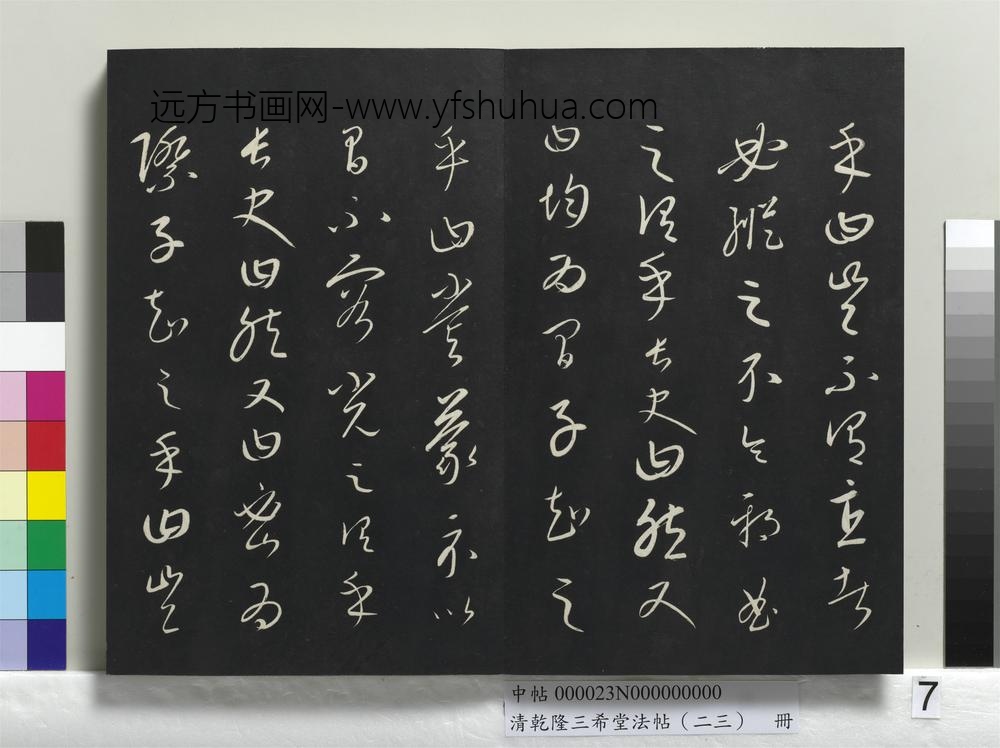 远方书画网-www.yfshuhua.com
乎曰豈不謂直者
必縱之不令邪曲
之謂乎長史曰然又
曰均為間子知之
乎曰嘗蒙示以
間不容光之謂乎
長史曰然又曰密為
際子知之乎曰豈
中帖 000023N000000000
清乾隆三希堂法帖（二三） 冊
7